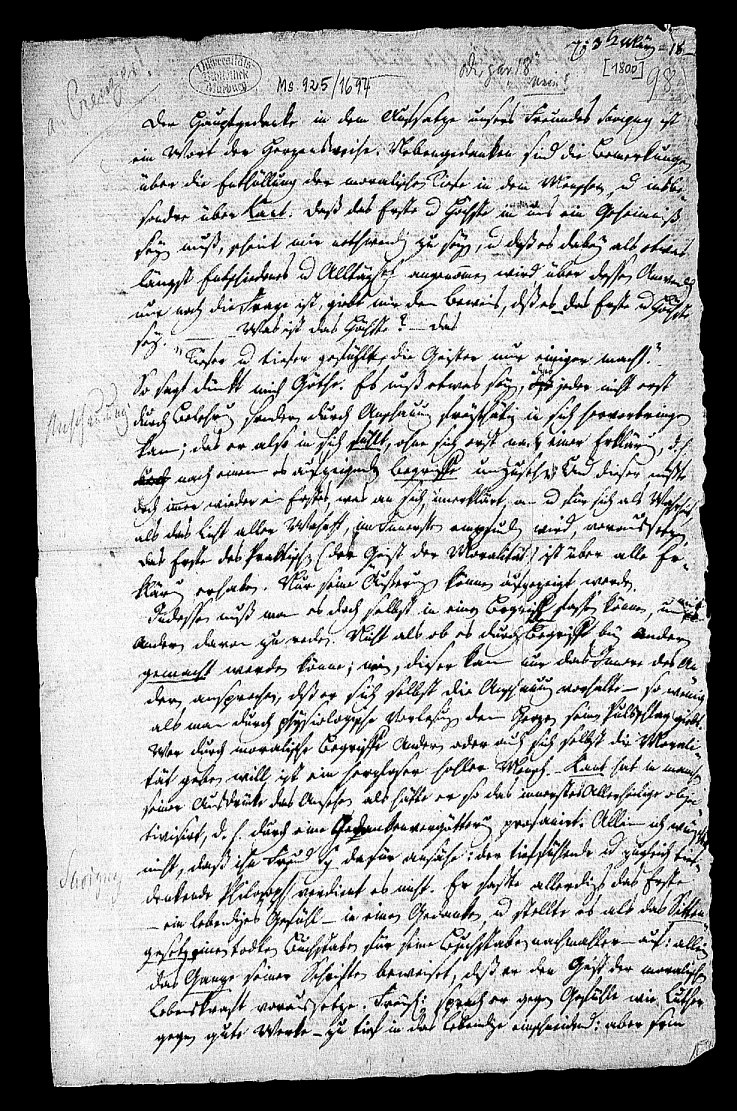 an Creuzer!
Universitäts
Bibliothek
Marburg
Ms. 925/1644
[1800]
98
Der Hauptgedanke in dem Aufsatze unsers Freundes Savigny ist
ein Wort der Herzensweise. Nebengedanken sind die Bemerkungen
über die Enthüllung der moralischen Tiefe in den Menschen, u insbe-
sondre über Kant. Daß das Erste u Höchste in uns ein Geheimniß
seyn muß, scheint mir nothwendig zu seyn, u daß es dabey als etwas
längst Entschiedenes u Alltägliches angenommen wird über dessen
nur noch die Frage ist, giebt mir den Beweis, dß es das Erste u Höchste
sey. — Was ist das Höchste? — das
"Tiefer u tiefer gefühlt, die Geister nur einiger macht."
So sagt dünkt mich Göthe. Es muß etwas seyn, das jeder nicht erst
durch Belehrung sondern durch Anschauung in sich hervorbringen
Anschauung
kan; das er also in sich fühlt, ohne sich erst nach einer Erklärung, d.h.
nach einem es aufzeigenden Begriffe umzusehen. Und dieser müßte
doch immer wieder ein Erstes, was an sich, unerklärt, an u für sich als Wahrheit,
als das Licht aller Wahrheit, im Innersten empfunden wird, voraussetzen.
Das Erste des Praktischen (der Geist der Moralität) ist über alle Er-
klärung erhaben. Nur seine Äußerungen können aufgezeigt werden.
Indessen muß man es doch selbst in einen Begriff fassen können, um mit
Andern davon zu reden. Nicht als ob es durch den Begriff bey Andern
gemacht werden könne; nein, dieser kan nur das Innere des An-
dern ansprechen, dß er sich selbst die Anschauung vorhalte — so wenig
als man durch physiologische Vorlesungen dem Herzen seinen Pulsschlag giebt.
Wer durch moralische Begriffe Andern oder auch sich selbst die Morali-
tät geben will, ist ein herzloser hohler Mensch. — Kant hat in manchen
seiner Ausdrücke das Ansehen als hätte er so das innerste Allerheilige obje-
ctivisirt, d. h. durch eine Gedankenvergötterung profanirt. Allein ich wünschte
nicht, daß ihn Freund S. dafür ansähe: der tieffühlende u zugleich tief-
Savigny
denkende Philosoph verdient es nicht. Er faßte allerdings das Erste
— ein lebendiges Gefühl — in einen Gedanken, u stellte es als das Sitten-
gesetz, einen todten Buchstaben für seine Buchstabennachmahler — auf: allein
das Ganze seiner Schriften beweiset, dß er den Geist der moralischen
Lebenskraft voraussetze. Freilich sprach er gegen Gefühle wie Luther
gegen gute Werke — zu tief in das Lebendige einschneidend: aber sein